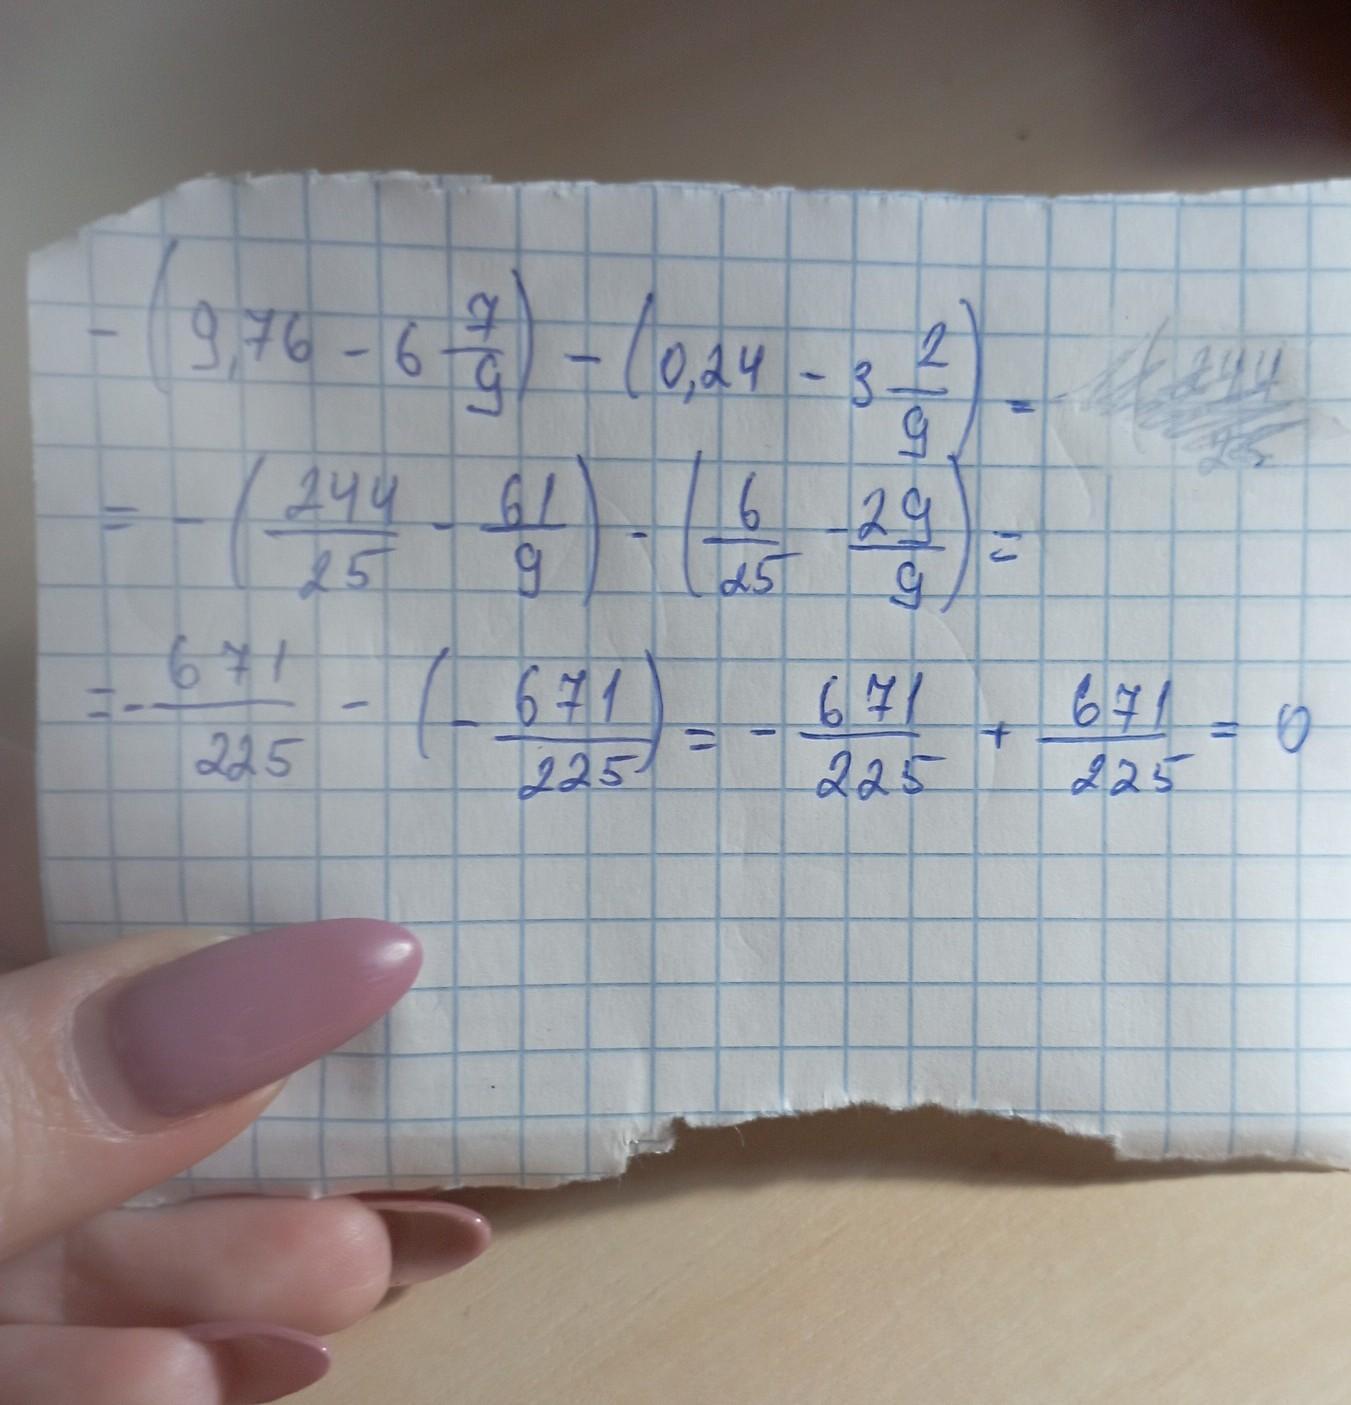 - (9,76 - 6 7/9) - (0,24 - 3 2/9) =
= - (244/25 - 61/9) - (6/25 - 29/9) =
= - 671/225 - (- 671/225) = - 671/225 + 671/225 = 0